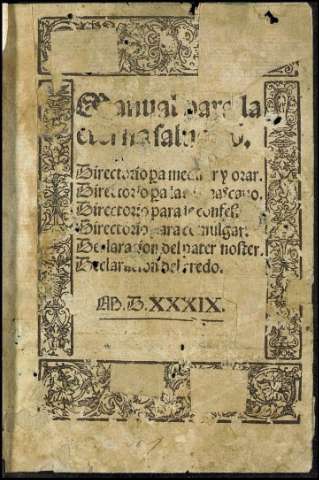 Manual para la
eterna salu
Directorio pa meditar y orar.
Directorio pa las
Directorio para se confes
Directorio para comulgar
Declaracion del pater noster.
Declaracion del credo.
M. D. XXXIX.